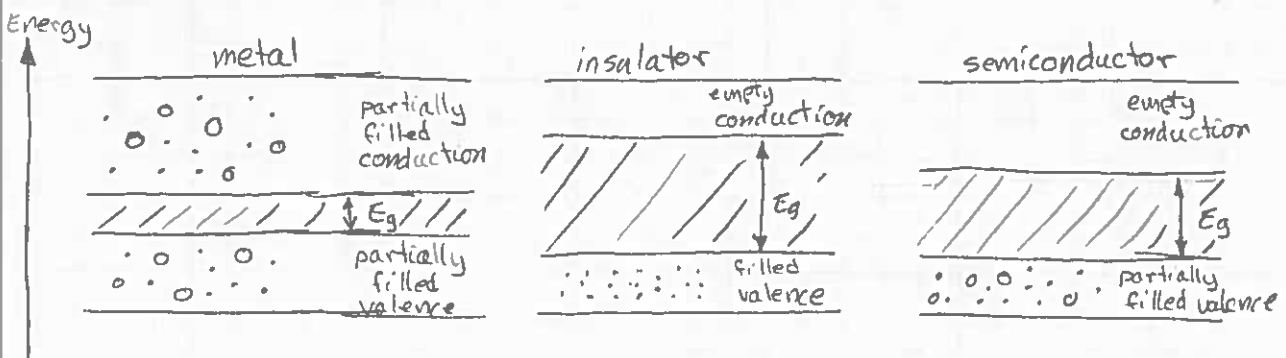 Energy
metal
partially
filled
conduction
Eg
partially
filled
valence
insulator
empty
conduction
Eg
filled
valence
semiconductor
empty
conduction
Eg
partially
filled valence